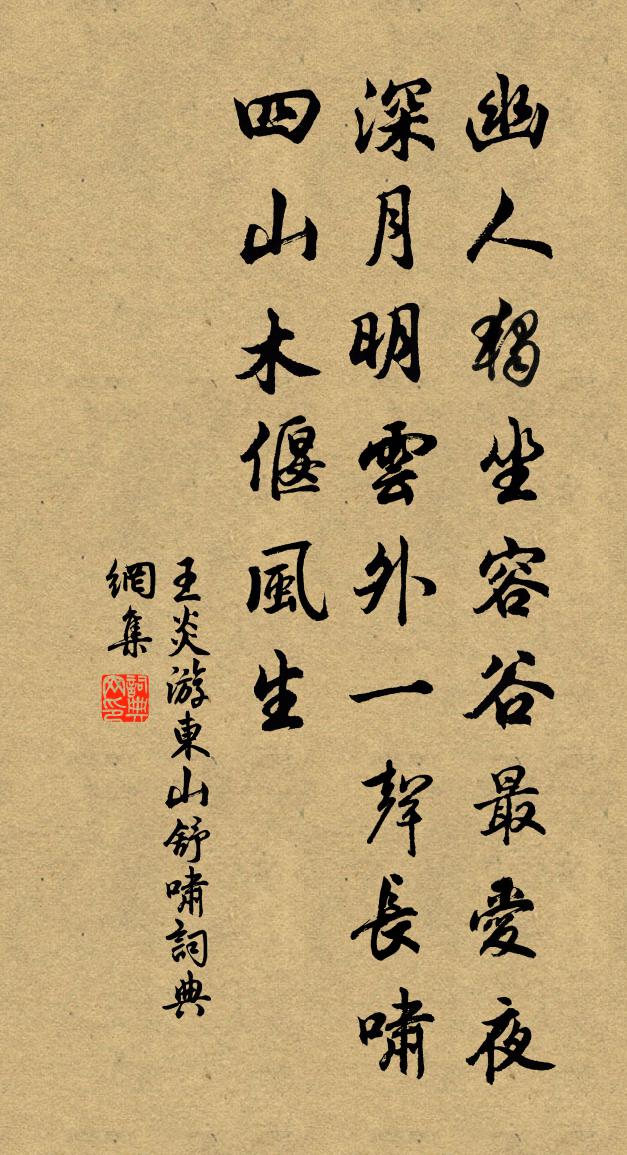 幽人獨坐容谷最愛夜
深月明雲外一聲長嘯
四山木偃風生
王炎游東山舒嘯詞典
網集
詞典